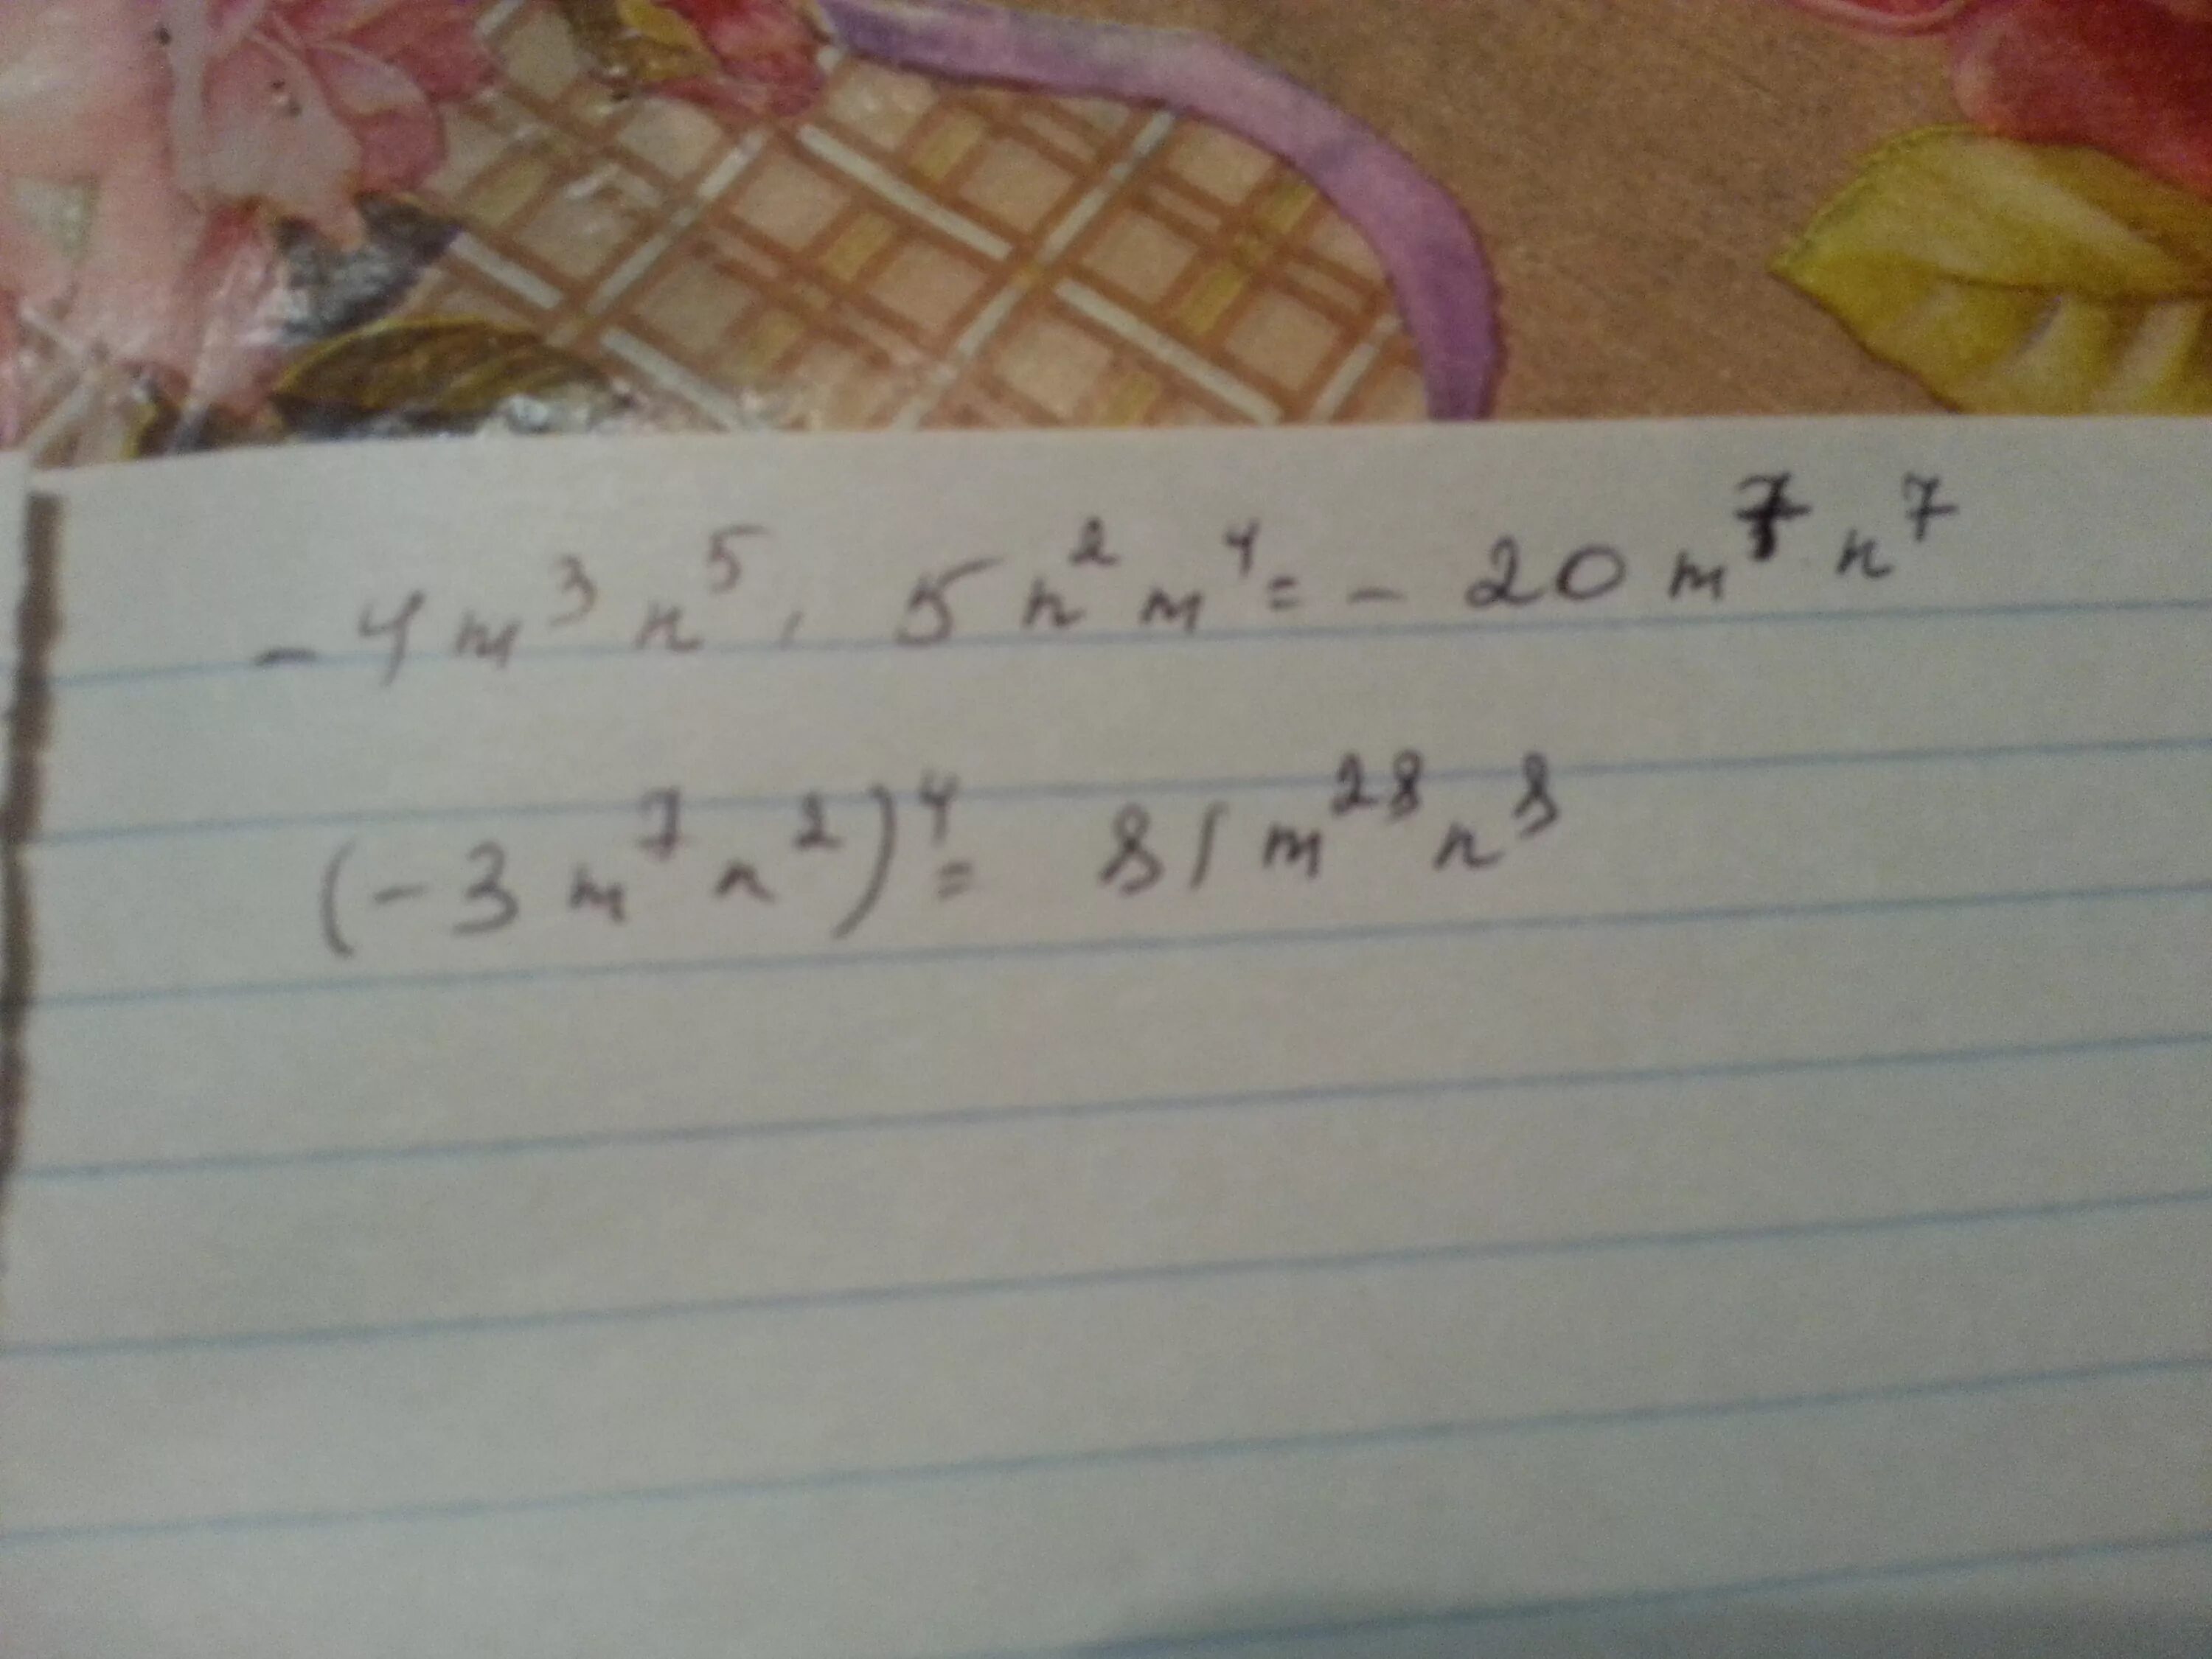 -4m³n⁵, 5n²m⁴= - 20m⁷n⁷
(-3m⁷n²)⁴= 81m²⁸n⁸